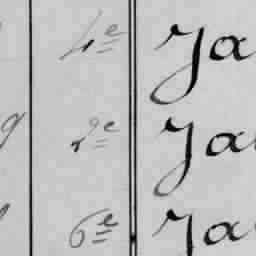 4e Ja
g 2e Ja
6e Ja